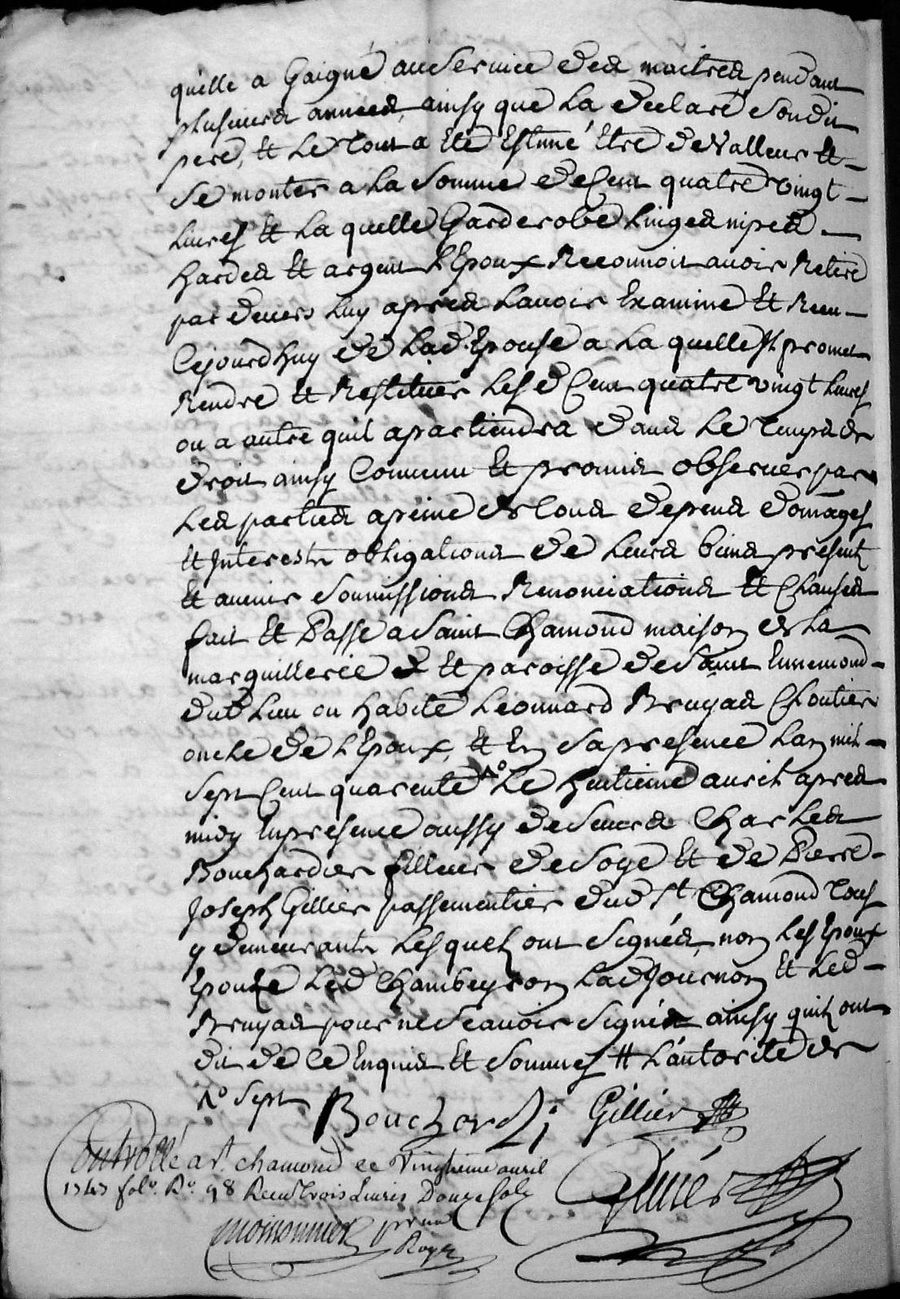 quelle a Gaigné au Service des maitres pendant
plusieurs années, ainsy que La declaré Son dit
pere, et Le Tout a Eté Estimé Etre de Valleur et
Se monter a La Somme de Cent quatre vingt
Livres et La quelle Garderobe Linges nipes
hardes et argent L'Epoux Reconnoit avoir Retiré
par devers Luy apres Lavoir Examiné et Receu
Cejourdhuy de Lad. Epouse a La quelle Il promet
Rendre et Restituer Les d Cent quatre vingt Livres
ou a autre quil apartiendra dans Le Temps de
droit ainsy Convenu et promis observer par
Les parties a peine de Tous depens domages
et Interests obligations de Leurs biens presents
et avenir Soumissions Renonciations et Clauses
fait et Passé a Saint Chamond maison de La
marguillerie et paroisse de Saint Ennemond
dud Lieu ou habite Léonnard Bruyas Cloutier
oncle de L'Epoux, et En Sa presence Lan mil
Sept Cent quarente No Le huitieme avril apres
midy En presence aussy de Sieurs Charles
Bouchardier filleur de Soye et de Pierre
Joseph Gillier passementier dud St Chamond Tous
y demeurants Lesquels ont Signés, non Les Epoux
Epouze Led Chambeyron Lad Journon et Led
Bruyas pour ne Scavoir Signér ainsy quils ont
dit de ce Enquis et Sommés # L'autorité de
No Sept
Boucherdi Gillier
Controllé a St chamond ce Vingtieme avril
1747 folo Ro 98 Receu Trois Livres Douze Sols